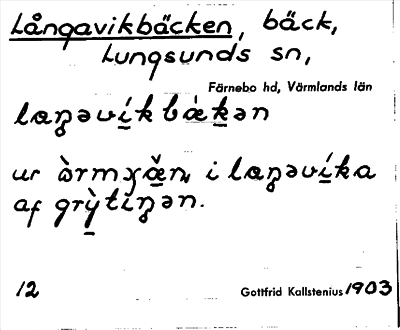 Långavikbäcken, bäck,
Lungsunds sn,
Färnebo hd, Värmlands län
laŋəvíkbàkən
ur òrmʒǟn i laŋəvíka
af grỳtiŋən.
12 Gottfrid Kallstenius 1903